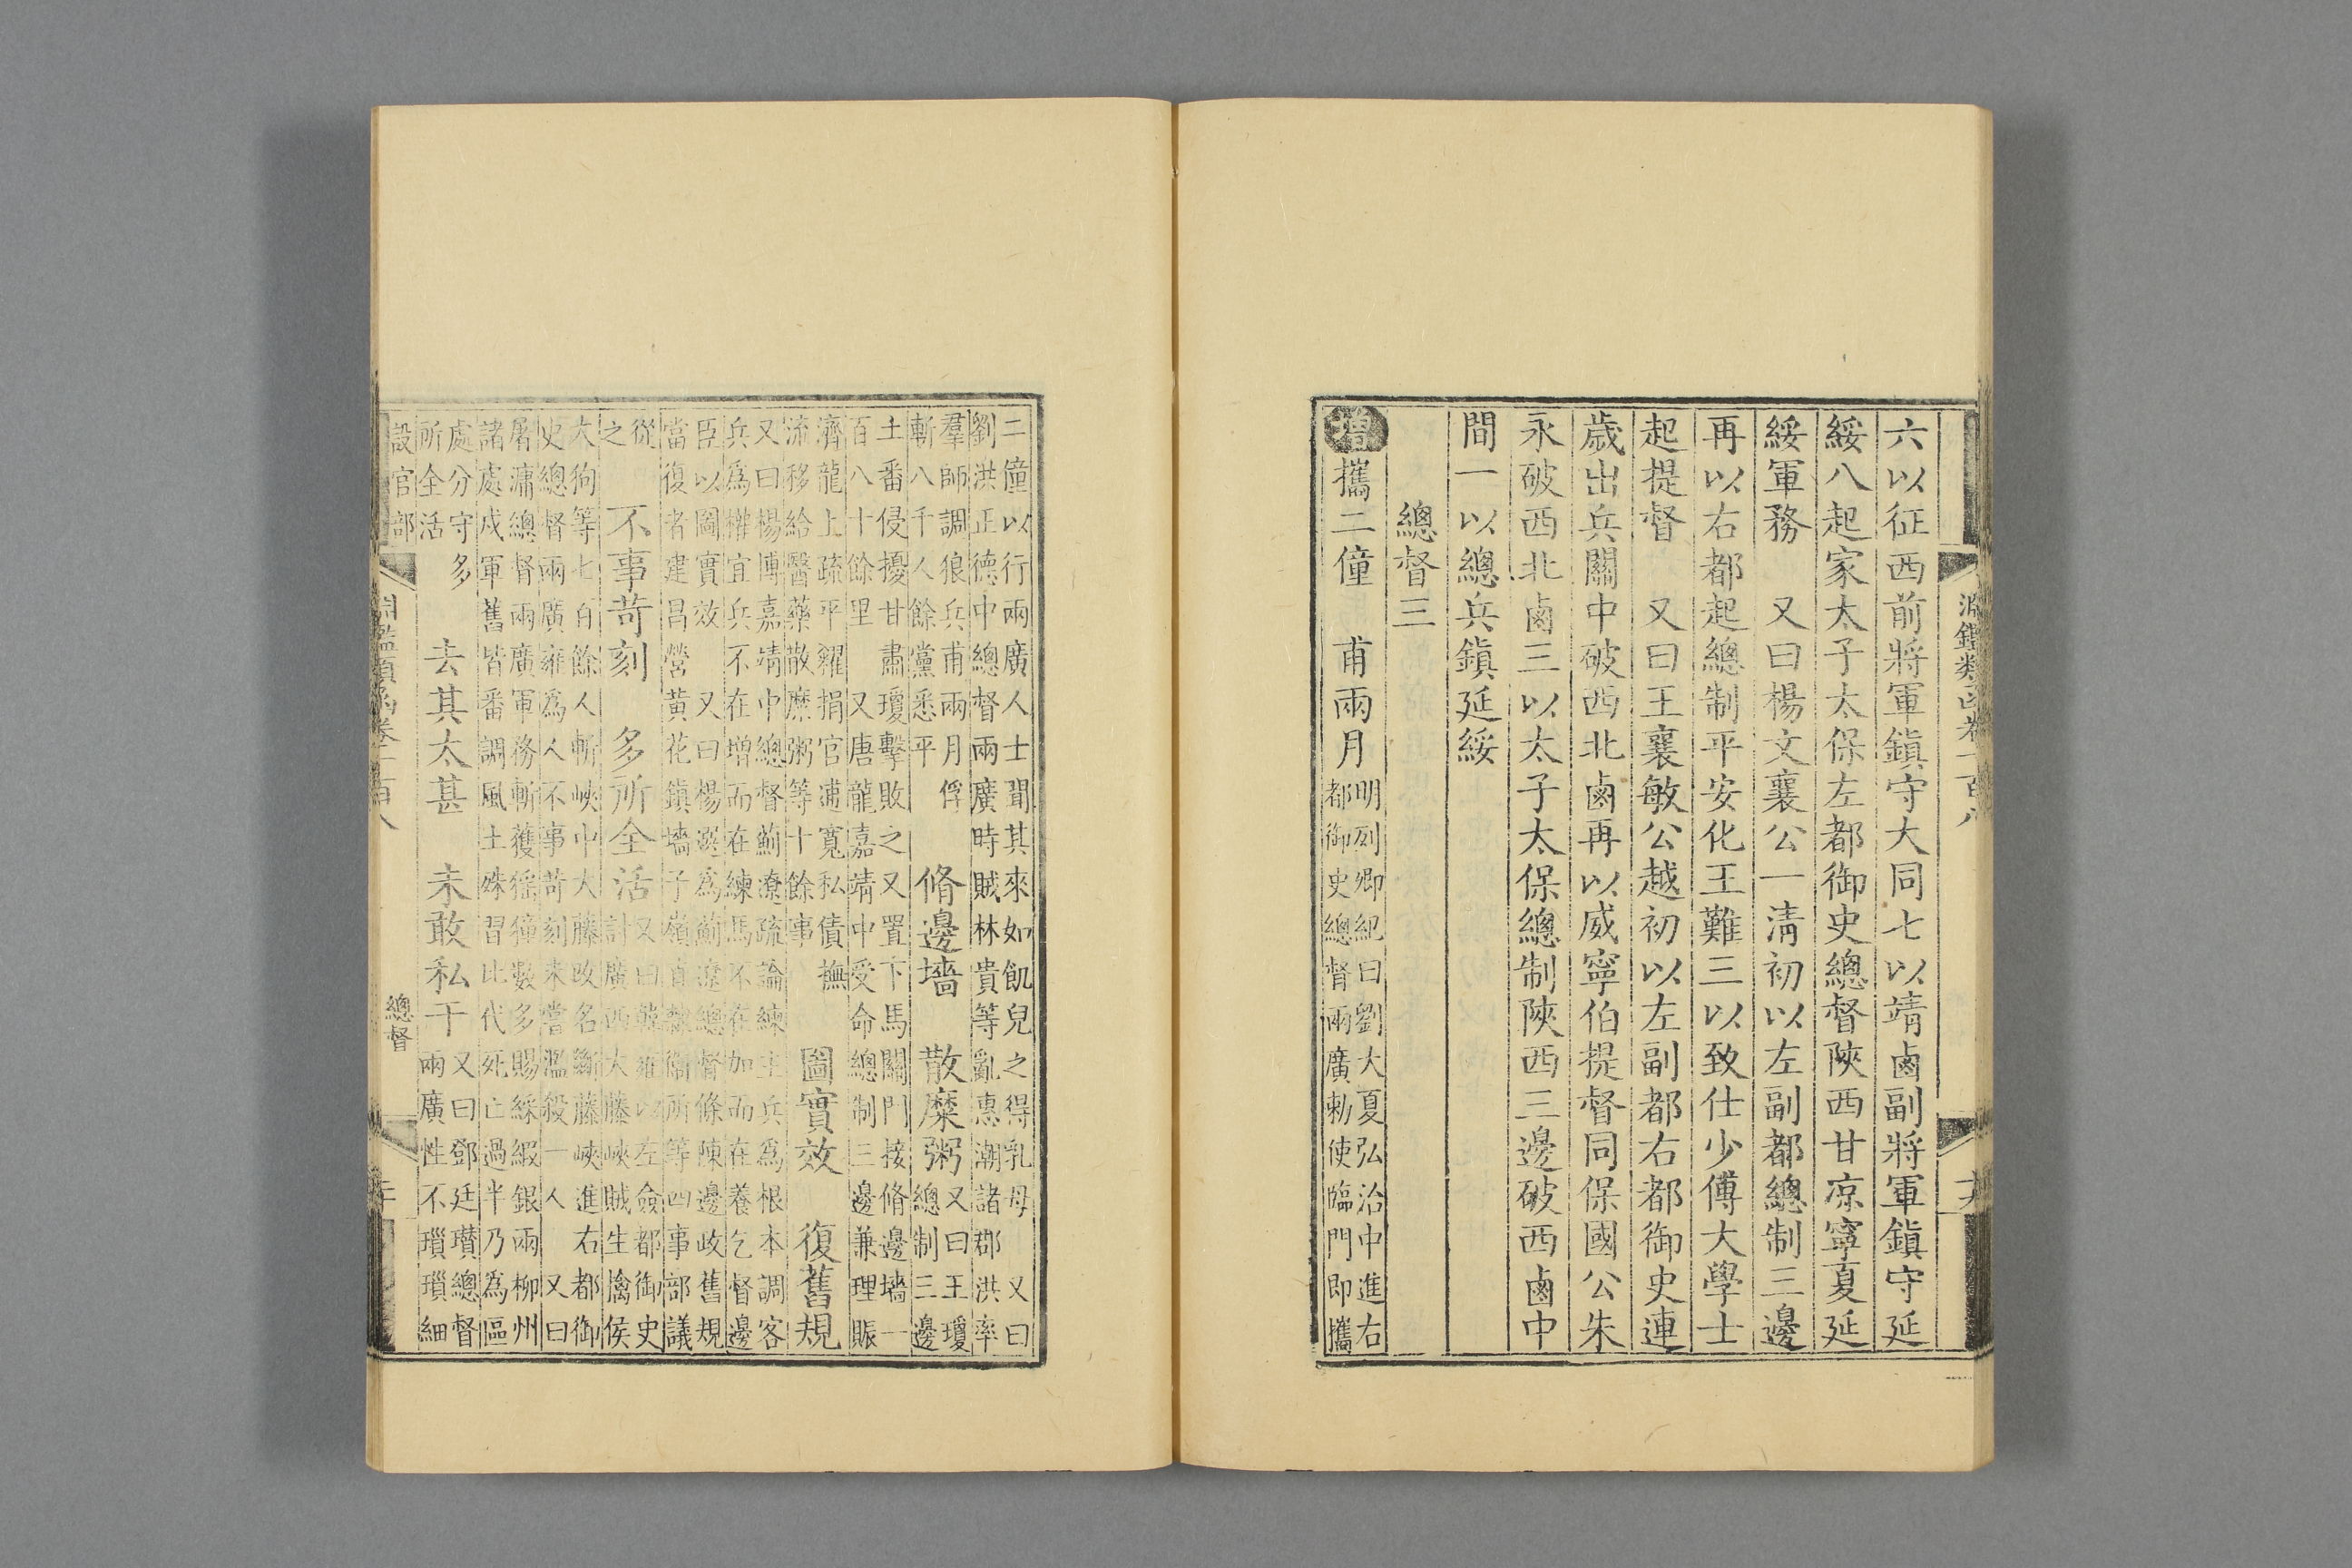 淵鑑類函卷一百八
六以征西前將軍鎮守大同七以靖鹵副將軍鎮守延
綏八起家太子太保左都御史總督陝西甘凉寧夏延
綏軍務 又曰楊文襄公一清初以左副都總制三邊
再以右都起總制平安化王難三以致仕少傅大學士
起提督 又曰王襄敏公越初以左副都右都御史連
歲出兵關中破西北鹵再以威寧伯提督同保國公朱
永破西北鹵三以太子太保總制陝西三邊破西鹵中
間一以總兵鎮延綏
總督三
增攜二僮 甫兩月
明列卿紀曰劉大夏弘治中進右
都御史總督兩廣勅使臨門即攜
二僮以行兩廣人士聞其來如飢兒之得乳母 又曰
劉洪正德中總督兩廣時賊林貴等亂惠潮諸郡洪率
羣師調狼兵甫兩月俘
斬八千人餘黨悉平
脩邊墻 散糜粥
又曰王瓊
總制三邊
土番侵擾甘肅瓊擊敗之又置下馬關門接脩邊墻一
百八十餘里 又唐龍嘉靖中受命總制三邊兼理賑
濟龍上疏平糴捐官逋寬私債撫
流移給醫藥散糜粥等十餘事
圖實效 復舊規
又曰楊博嘉靖中總督薊遼疏論練主兵為根本調客
兵為權宜兵不在增而在練馬不在加而在養乞督邊
臣以圖實效 又曰楊選為薊遼總督條陳邊政舊規
當復者建昌營黃花鎮墻子嶺首領衙所等四事部議
從
之
不事苛刻 多所全活
又曰韓雍以左僉都御史
計廣西大藤峽賊生擒侯
大狗等七百餘人斬峽中大藤改名斷藤峽進右都御
史總督兩廣雍為人不事苛刻未嘗濫殺一人 又曰
屠滽總督兩廣軍務斬獲猺獞數多賜綵緞銀兩柳州
諸處戍軍舊皆番調風土殊習比代死亡過半乃為區
處分守多
所全活
去其太甚 未敢私干
又曰鄧廷瓚總督
兩廣性不瑣瑣細
設官部
淵鑑類函卷一百八
總督